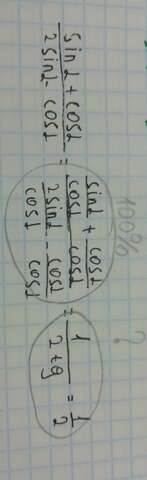 100% ?
sinα + cosα / 2sinα - cosα = sinα/cosα + cosα/cosα / 2sinα/cosα - cosα/cosα = 1 / 2 tg = 1/2